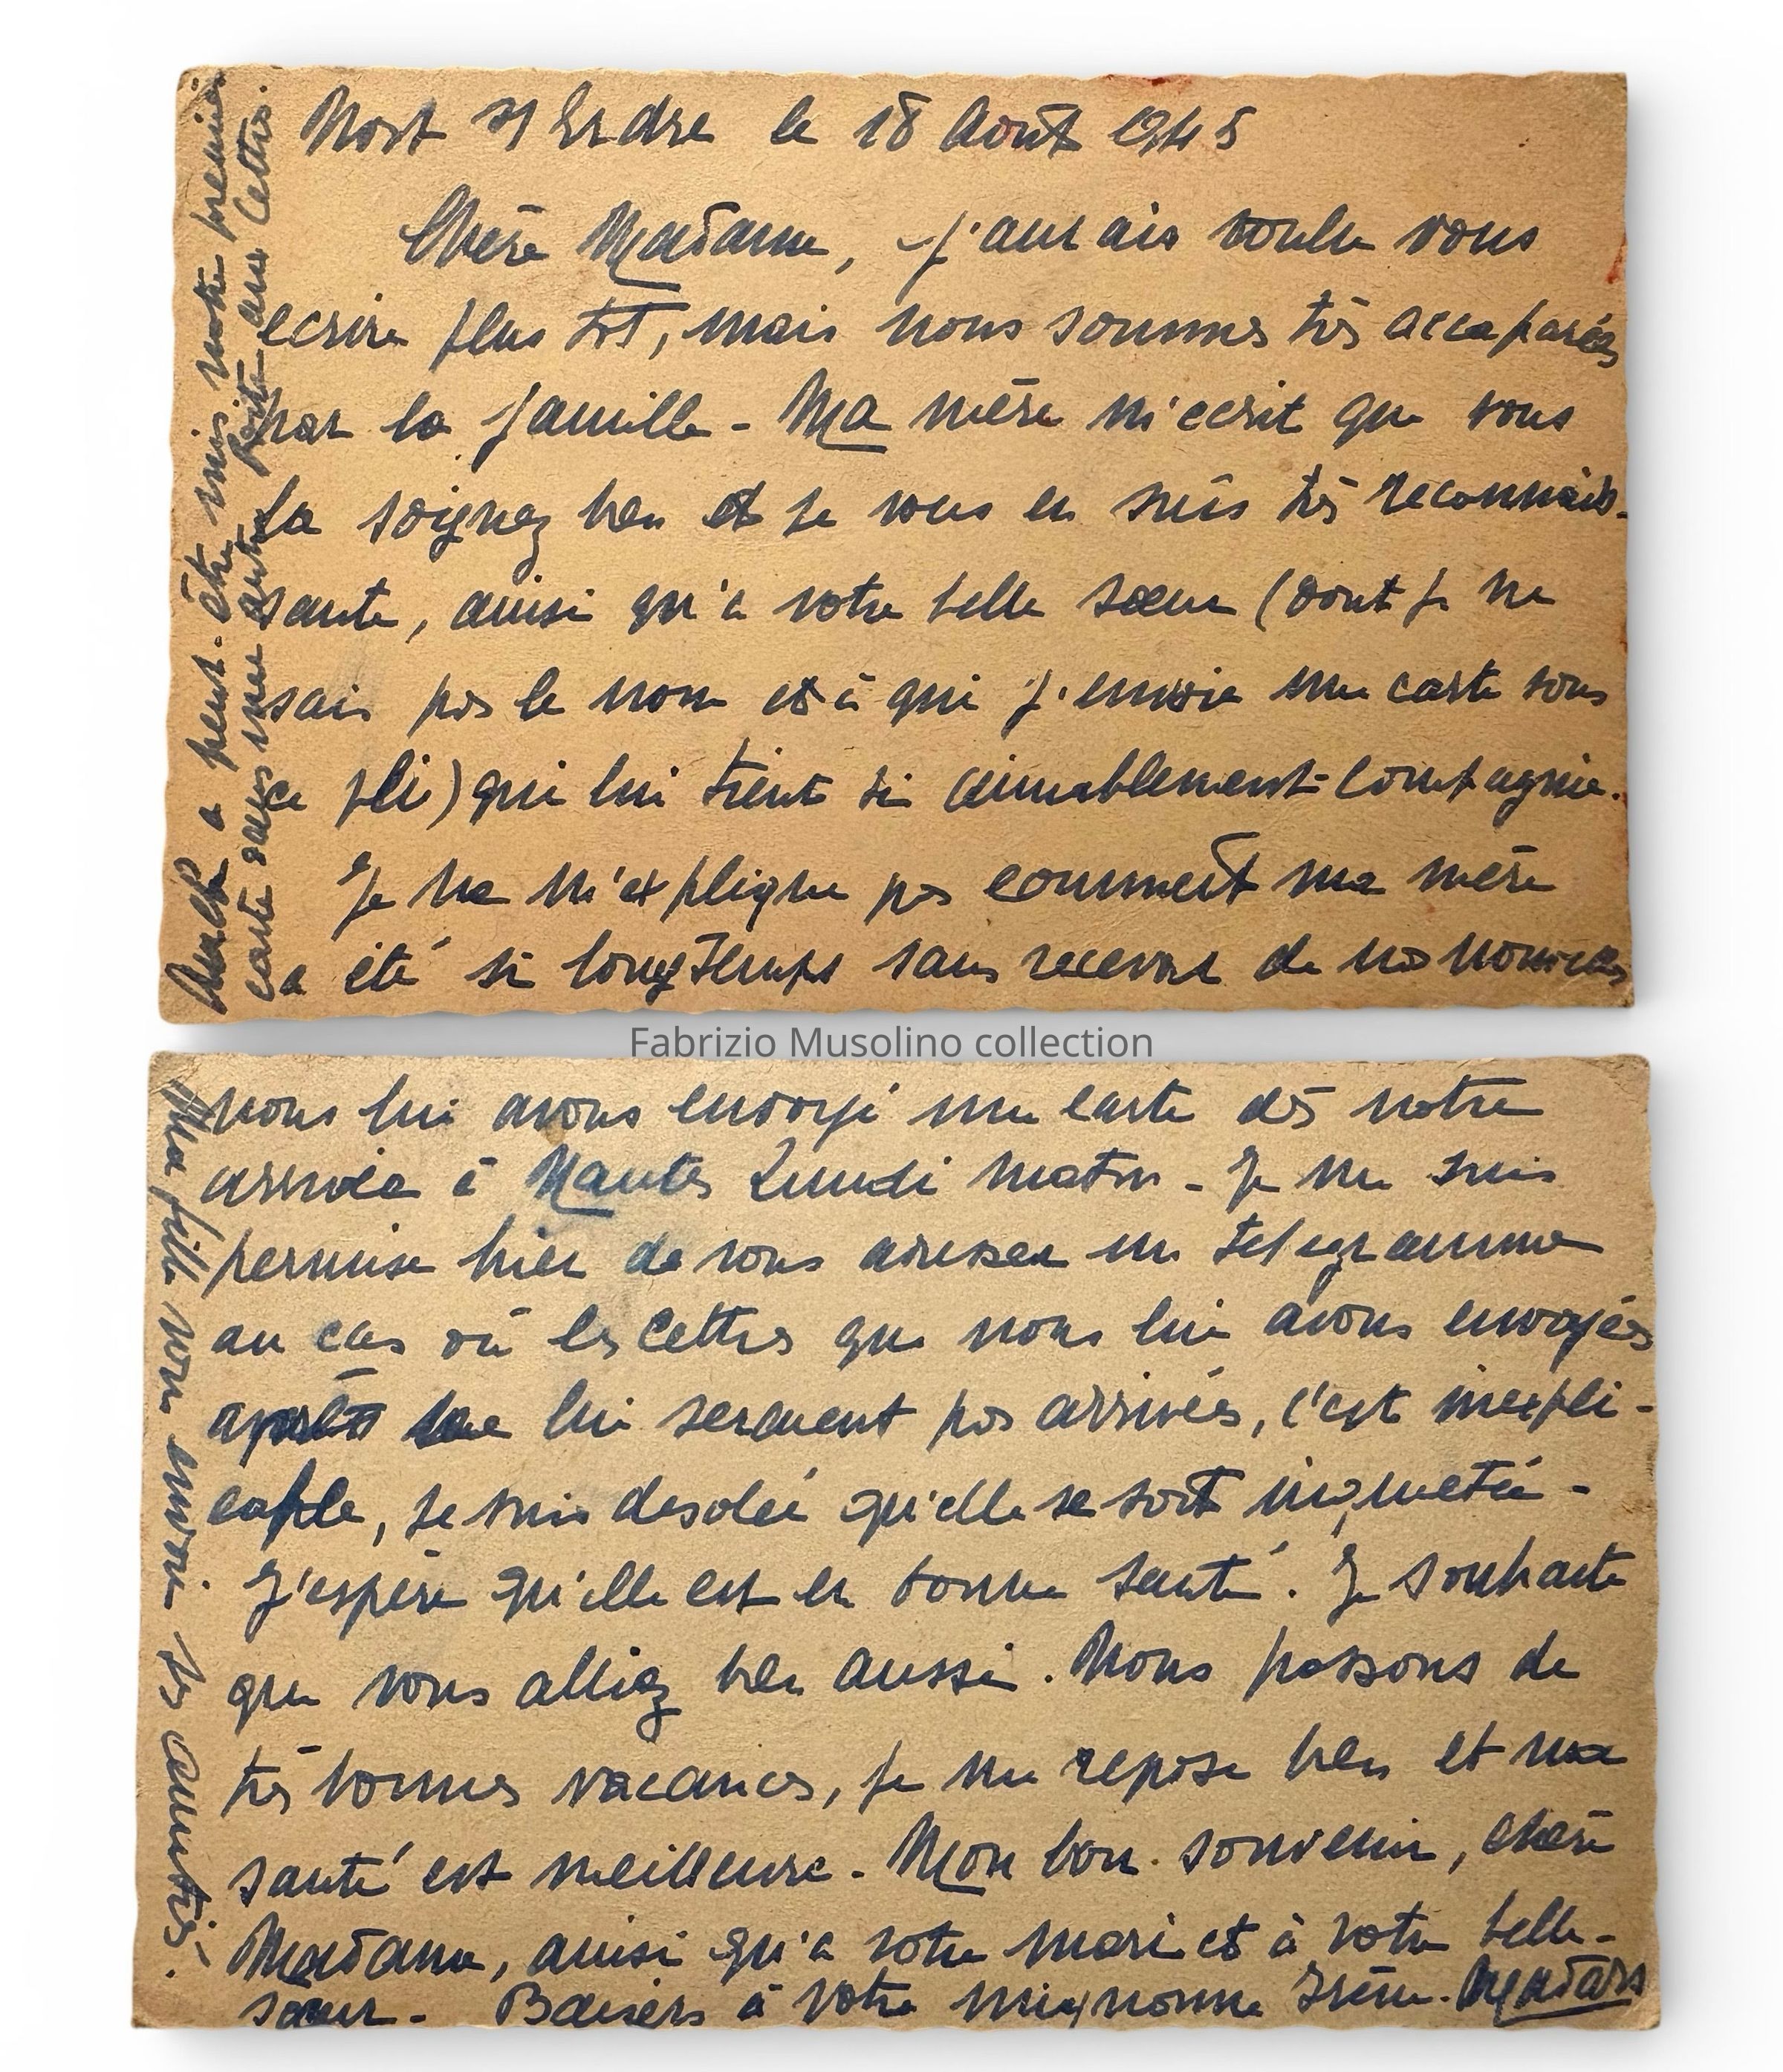 Nort s/ Erdre le 18 Août 1945
Chère Madame, j'aurais voulu vous
ecrire plus tôt, mais nous sommes très accaparés
par la famille - Ma mère m'ecrit que vous
la soignez bien et je vous en suis très reconnais-
sante, ainsi qu'à votre belle sœur (dont je ne
sais pas le nom et à qui j'envoie une carte sous
ce pli) qui lui tient si aimablement compagnie.
Je ne m'explique pas comment ma mère
a été si longtemps sans recevoir de nos nouvelles
a peut-être mis notre première
carte dans une autre boite aux lettres.
Fabrizio Musolino collection
nous lui avons envoyé une carte dès notre
arrivée à Nantes Lundi matin - Je me suis
permise hier de vous adresser un telegramme
au cas où les lettres que nous lui avons envoyées
après ne lui seraient pas arrivées, c'est inexpli-
cable, je suis desolée qu'elle se soit inquietée -
J'espère qu'elle est en bonne santé. Je souhaite
que vous alliez bien aussi. Nous passons de
très bonnes vacances, je me repose bien et ma
santé est meilleure - Mon bon souvenir, chère
Madame, ainsi qu'à votre mari et à votre belle-
sœur - Baisers à votre mignonne Irène.
Ma fille vous envoie ses amitiés.